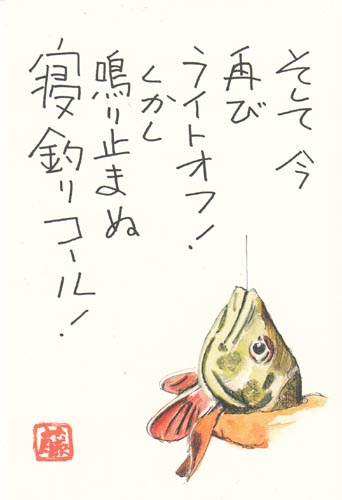 そして 今
再び
ライトオフ！
くかし
鳴り止まぬ
寝釣りコール！
藤